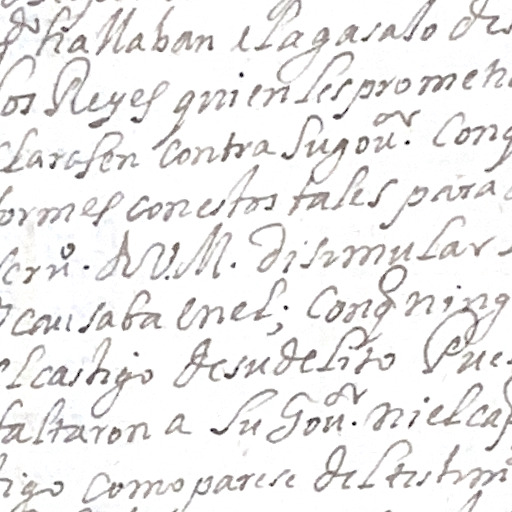 qᵈ hallaban el agasalo des
los Reyes quien les prometi
clarasen contra su gouᵒʳ. Conq
formes con estos tales para
scruᵒ. A V.M. disimular
ocausaba en el; Conq ning
el castigo de su delito Pues
faltaron a Su Gouᵒʳ. ni el cap
tigo como parese del testimᵒ